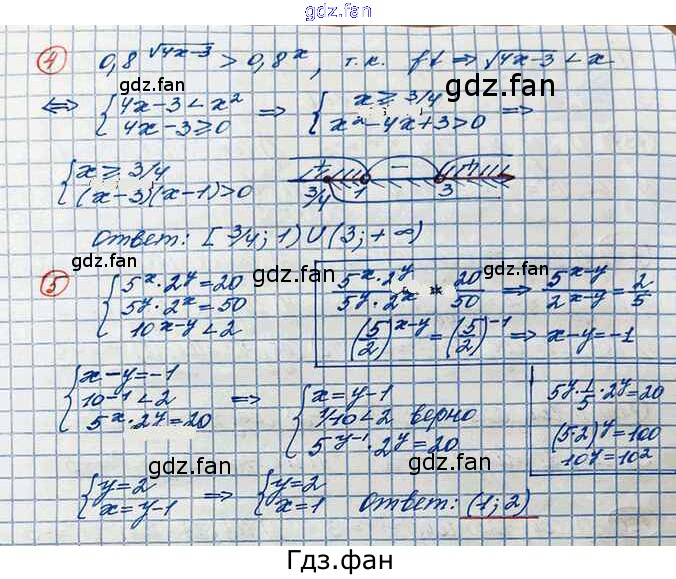 gdz.fan
4 0,8^√(4x-3) > 0,8^x, т.к. f↓ ⇒ √(4x-3) < x
gdz.fan gdz.fan
⇔ { 4x-3 < x² ⇒ { x ≥ 3/4 ⇒
4x-3 ≥ 0 x²-4x+3 > 0
{ x ≥ 3/4 + - +
(x-3)(x-1) > 0 3/4 1 3
Ответ: [3/4; 1) ∪ (3; +∞)
gdz.fan gdz.fan
5 { 5^x · 2^y = 20
5^y · 2^x = 50
10^(x-y) < 2
(5^x · 2^y)/(5^y · 2^x) = 20/50 ⇒ 5^(x-y)/2^(x-y) = 2/5
(5/2)^(x-y) = (5/2)^-1 ⇒ x-y = -1
gdz.fan gdz.fan
{ x-y = -1 ⇒ { x = y-1
10^-1 < 2 1/10 < 2 верно
5^x · 2^y = 20 5^(y-1) · 2^y = 20
5^y · 1/5 · 2^y = 20
(5·2)^y = 100
10^y = 10²
gdz.fan gdz.fan
{ y = 2 ⇒ { y = 2 Ответ: (1; 2)
x = y-1 x = 1
Гдз.фан